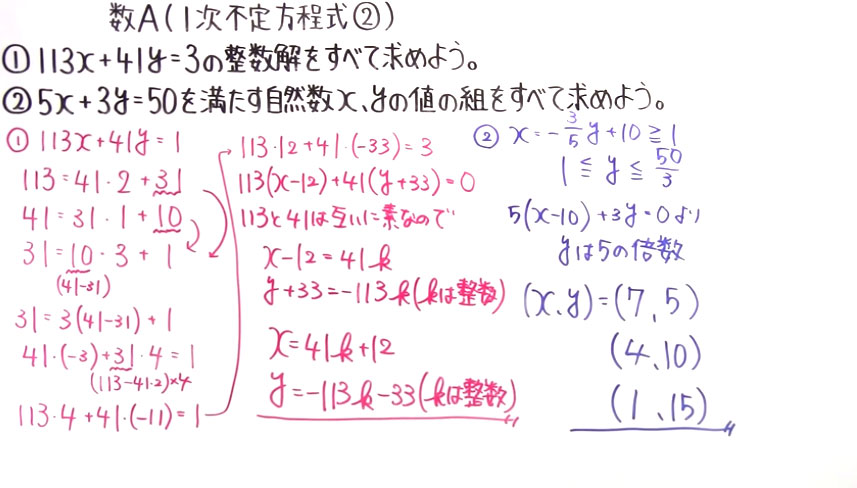 数A(1次不定方程式②)
① 113x+41y=3の整数解をすべて求めよう。
② 5x+3y=50を満たす自然数x、yの値の組をすべて求めよう。
① 113x+41y=1
113=41·2+31
41=31·1+10
31=10·3+1
(41-31)
31=3(41-31)+1
41·(-3)+31·4=1
(113-41·2)×4
113·4+41·(-11)=1
113·12+41·(-33)=3
113(x-12)+41(y+33)=0
113と41は互いに素なので
x-12=41k
y+33=-113k(kは整数)
x=41k+12
y=-113k-33(kは整数)
② x=-3/5y+10≧1
1≦y≦50/3
5(x-10)+3y=0より
yは5の倍数
(x、y)=(7、5)
(4、10)
(1、15)